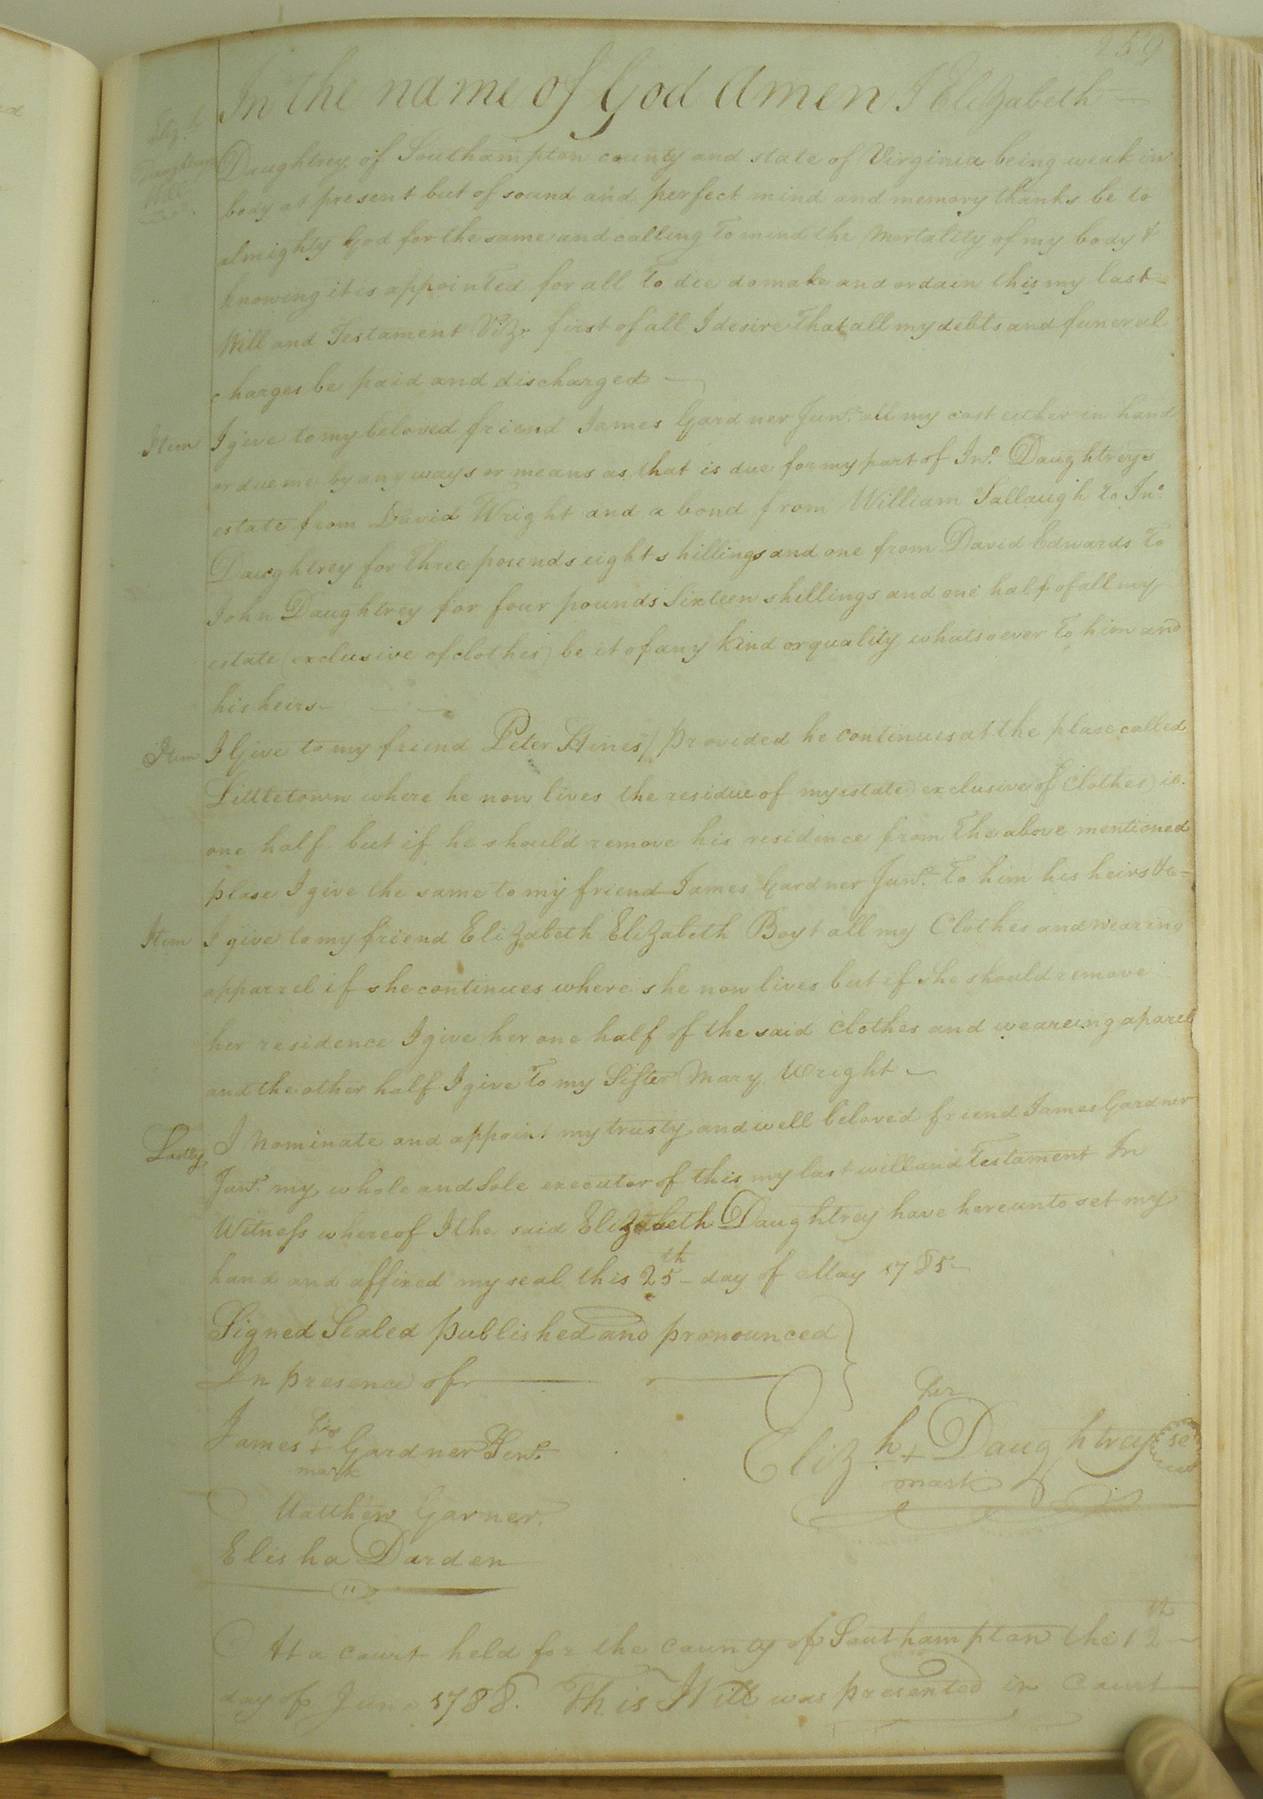 259
In the name of God Amen I Elizabeth
Daughtrey of Southampton county and state of Virginia being weak in
body at present but of sound and perfect mind and memory thanks be to
almighty God for the same and calling to mind the Mortality of my body &
knowing it is appointed for all to die do make and ordain this my last
Will and Testament Viz. first of all I desire that all my debts and funeral
charges be paid and discharged
Item I give to my beloved friend James Gardner Junr. all my cast either in hand
or due me by any ways or means as that is due for my part of Jno. Daughtreys
estate from David Wright and a bond from William Sallaugh to Jno.
Daughtrey for three pounds eight shillings and one from David Edwards to
John Daughtrey for four pounds Sixteen shillings and one half of all my
estate (exclusive of clothes) be it of any kind or quality whatsoever to him and
his heirs
Item I Give to my friend Peter Hines (provided he continues at the place called
Littletown where he now lives the residue of my estate) exclusive of Clothes) ie.
one half but if he should remove his residence from the above mentioned
place I give the same to my friend James Gardner Junr. to him his heirs &c
Item I give to my friend Elizabeth Elizabeth Boyt all my Clothes and wearing
apparel if she continues where she now lives but if she should remove
her residence I give her one half of the said clothes and weareing aparel
and the other half I give to my Sister Mary Wright
Lastly I Nominate and appoint my trusty and well beloved friend James Gardner
Junr. my whole and Sole executor of this my last will and Testament In
Witness whereof I the said Elizabeth Daughtrey have hereunto set my
hand and affixed my seal this 25th day of May 1785
Signed Sealed published and pronounced
In presence of
her
James his + mark Gardner Senr.
Elizh + Daughtrey se
mark
Matthew Garner.
Elisha Darden
At a court held for the county of Southampton the 12th
day of June 1788. This Will was presented in Court